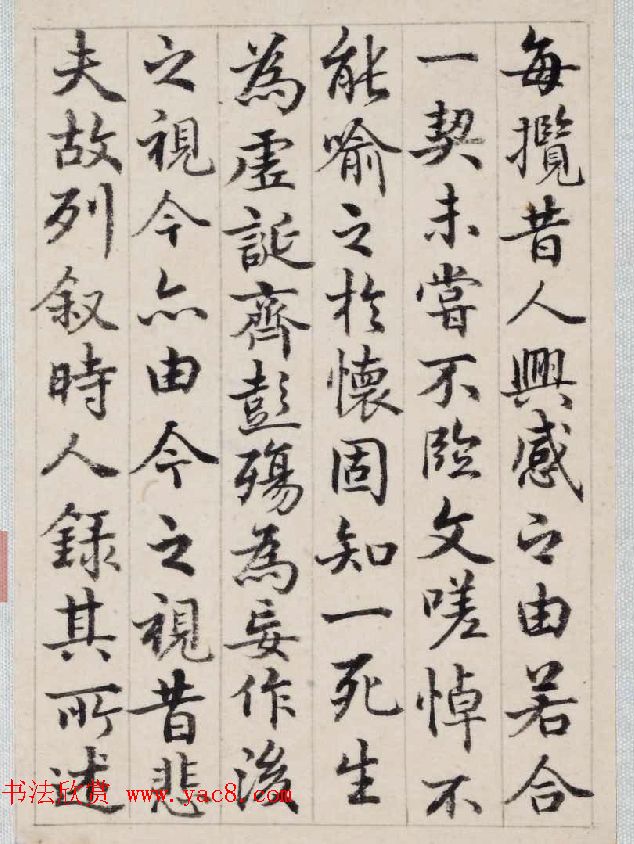 每攬昔人興感之由若合
一契未嘗不臨文嗟悼不
能喻之於懷固知一死生
為虛誕齊彭殤為妄作後
之視今亦由今之視昔悲
夫故列叙時人錄其所述
书法欣赏 www.yac8.com